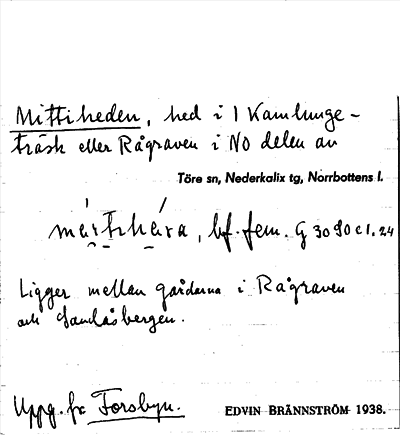 Mittiheden, hed i 1 Kamlunge-
träsk eller Rågraven i NO delen av
Töre sn, Nederkalix tg, Norrbottens l.
bf. fem. G 3090 c 1.24
Ligger mellan gårdarna i Rågraven
och Sandåsbergen.
Uppg. fr Forsbyn.
EDVIN BRÄNNSTRÖM 1938.